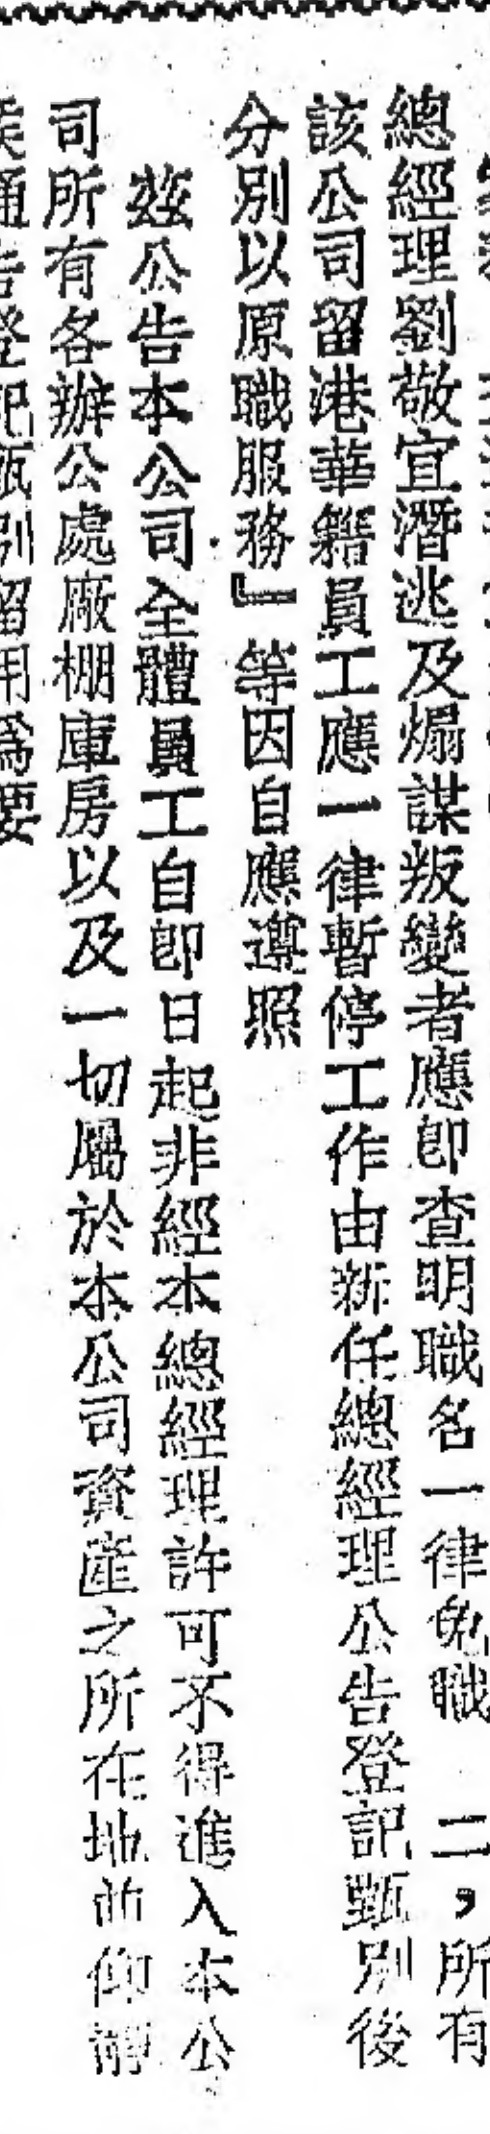 總經理劉敬宜潛逃及煽謀叛變者應即查明職名一律免職　二，所有
該公司留港華籍員工應一律暫停工作由新任總經理公告登記甄別後
分別以原職服務』等因自應遵照
茲公告本公司全體員工自即日起非經本總經理許可不得進入本公
司所有各辦公處廠棚庫房以及一切屬於本公司資產之所在地並仰靜
候通告登記甄別留用為要